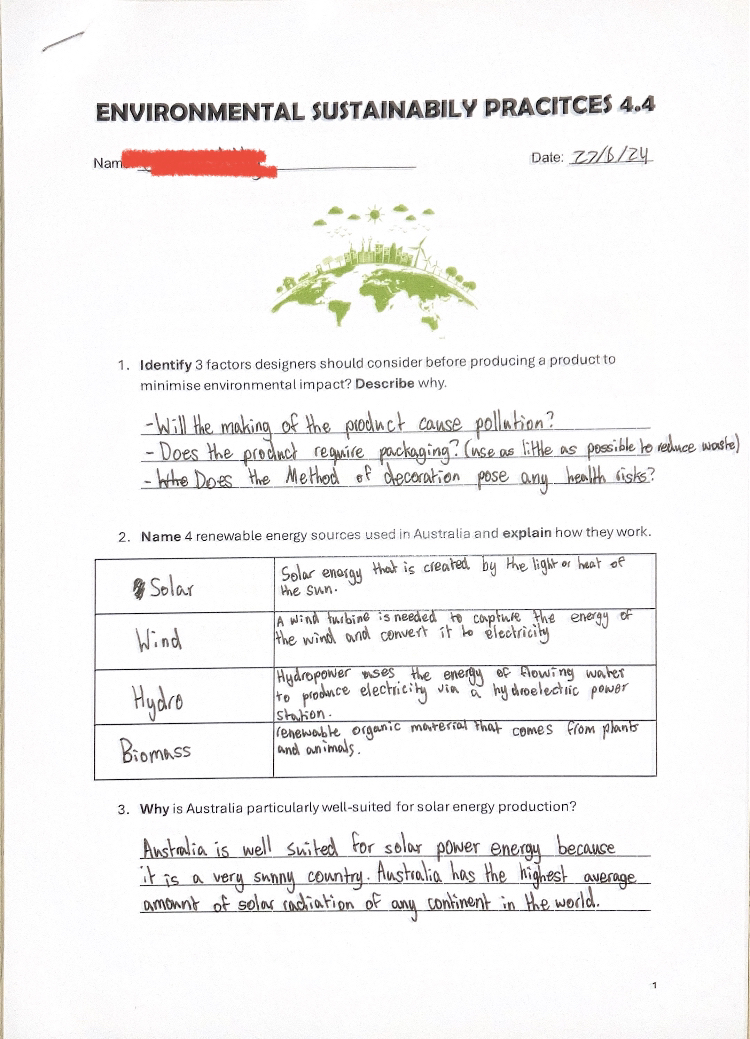 ENVIRONMENTAL SUSTAINABILY PRACITCES 4.4
Date: 27/6/24
1. Identify 3 factors designers should consider before producing a product to
minimise environmental impact? Describe why.
-Will the making of the product cause pollution?
- Does the product require packaging? (use as little as possible to reduce waste)
- Does the Method of decoration pose any health risks?
2. Name 4 renewable energy sources used in Australia and explain how they work.
Solar
Solar energy that is created by the light or heat of
the sun.
Wind
A wind turbine is needed to capture the energy of
the wind and convert it to electricity
Hydro
Hydropower uses the energy of flowing water
to produce electricity via a hydroelectric power
station.
Biomass
renewable organic material that comes from plants
and animals.
3. Why is Australia particularly well-suited for solar energy production?
Australia is well suited for solar power energy because
it is a very sunny country. Australia has the highest average
amount of solar radiation of any continent in the world.
1